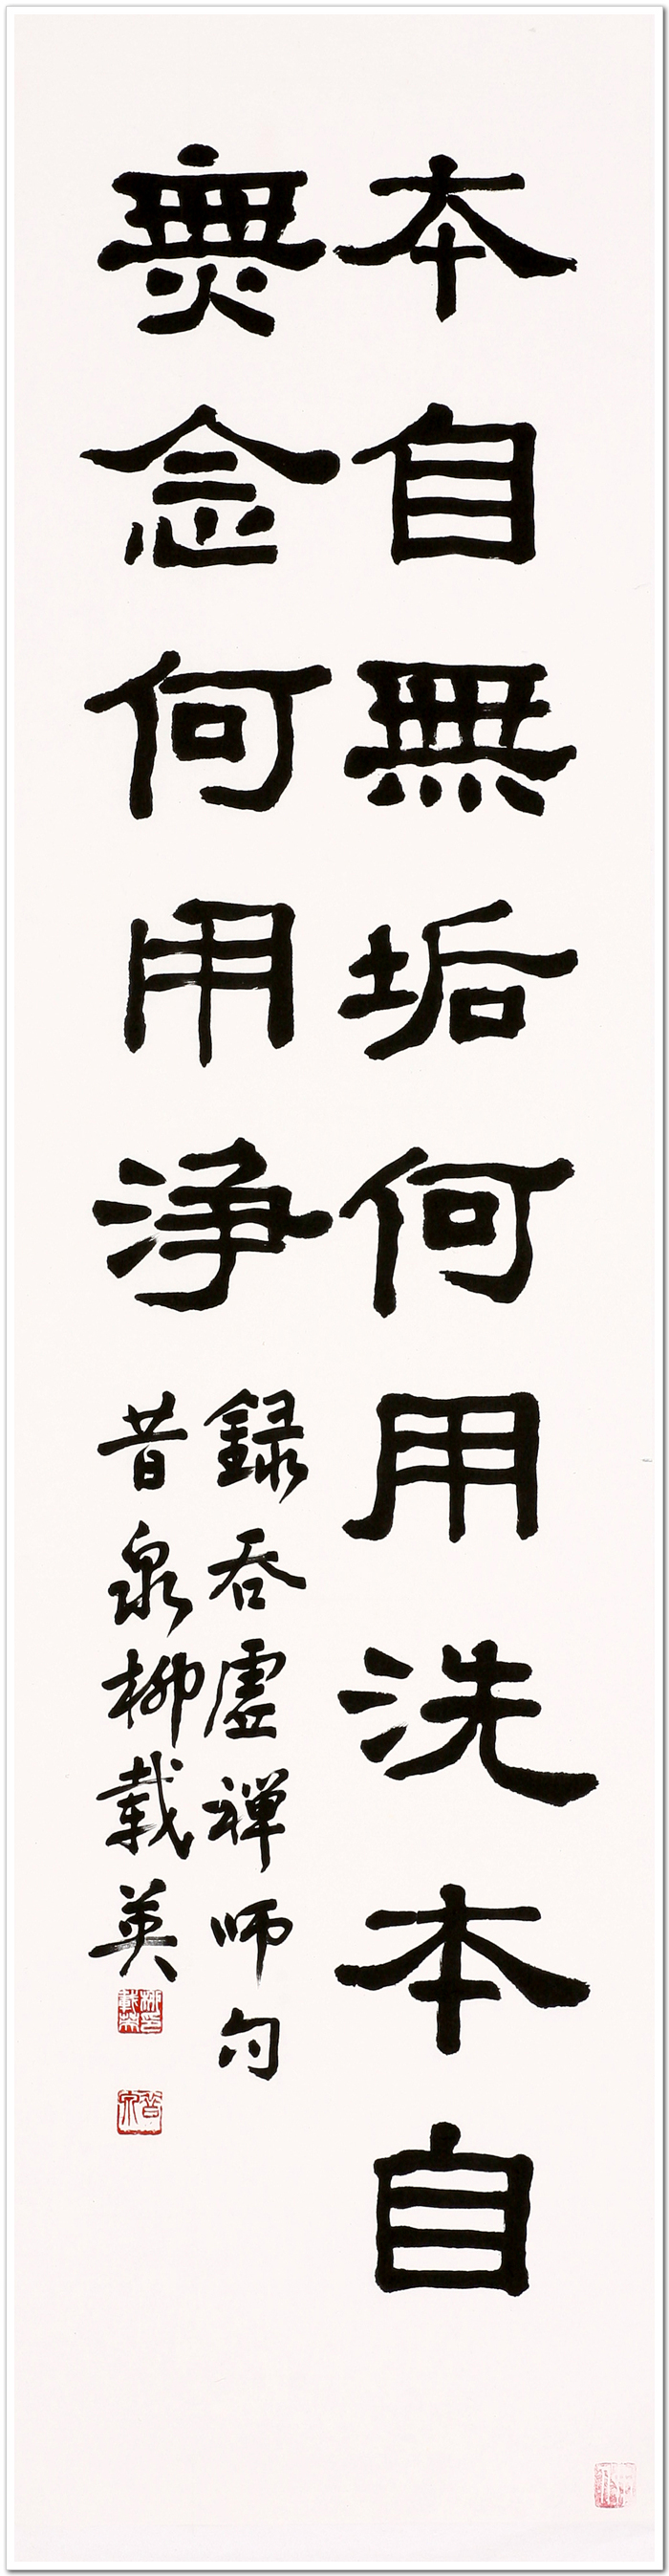 本自無垢何用洗本自
無念何用淨
録呑虛禅师句
昔泉柳載英